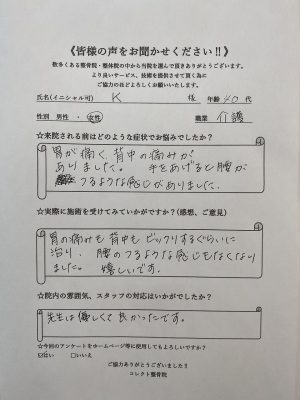 《皆様の声をお聞かせください!!》
数多くある整骨院・整体院の中から当院を選んで頂きありがとうございます。
より良いサービス、技術を提供させて頂く為に
ご協力のほどよろしくお願いいたします。
氏名(イニシャル可) K 様 年齢 40 代
性別 男性 ・ 女性 職業 介護
☆来院される前はどのような症状でお悩みでしたか?
胃が痛く、背中の痛みが
ありました。 手をあげると腰が
つるような感じがありました。
☆実際に施術を受けてみていかがですか?(感想、ご意見)
胃の痛みも背中もビックリするぐらいに
治り、腰のつるような感じもなくなり
ました。 嬉しいです。
☆院内の雰囲気、スタッフの対応はいかがでしたか?
先生は優しくて良かったです。
☆今回のアンケートをホームページ等に使用してもよろしいですか?
☑はい □いいえ
ご協力ありがとうございました!!
コレクト整骨院